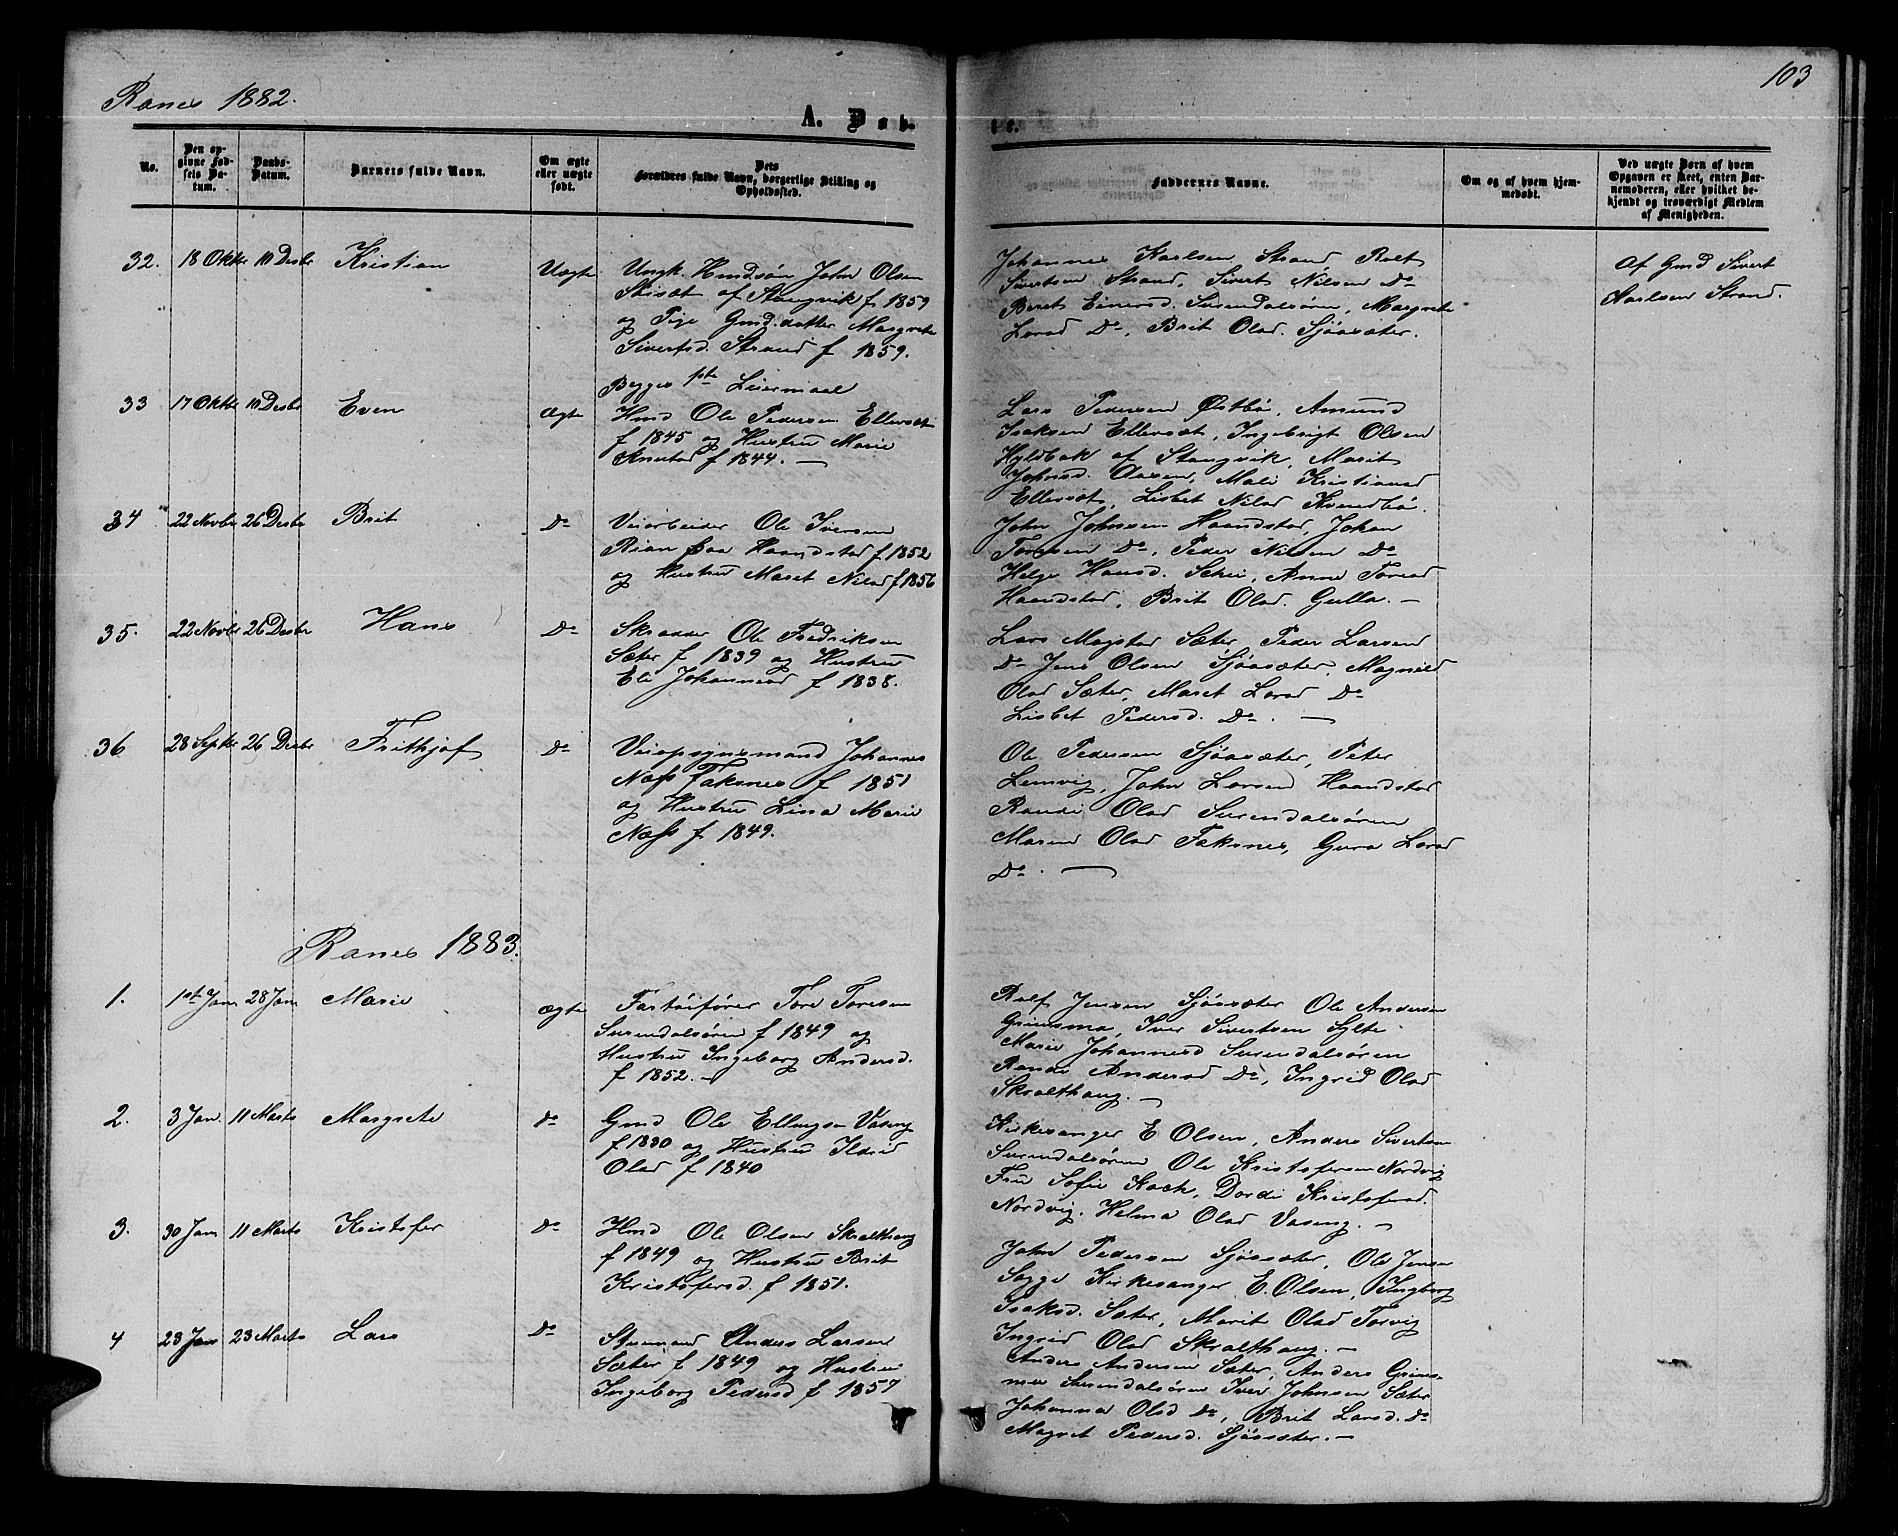 Ranes 1882.
103
A. Døb-
te.
No.
Den op-
givne Fød-
sels Da-
tum.
Daabs-
Datum.
Barnets fulde Navn.
Om ægte
eller uægte
født.
Dets
Forældres fulde Navn, borgerlige Stilling og
Opholdssted.
Faddernes Navne.
Om og af hvem hjem-
medøbt.
Ved uægte Børn af hvem
Opgaven er skeet, enten Bar-
nemoderen, eller hvilket be-
kjendt og troværdigt Medlem
af Menigheden.
32. 18 Oktbr 10 Desbr Kristian Uægte
Ungk. Hmdsøn John Olsen
af Stangvik f 1859
og Pige Gmd.datter Margrete
Sivertsd. Strand f 1859.
Begges 1ste Leiermaal
Johannes Karlsen Strand Rolf
Sivertsen Strand, Sivert Nilsen Do
Beret Einersd. Surendalsøren, Margrete
Larsd Do, Brit Olsd. Sjøasæter.
Af Gmd Sivert
Karlsen Strand.
33 17 Oktbr 10 Desbr Even Ægte
Hmd Ole Pedersen Ellevsæt
f 1845 og Hustru Marie
Knutsd f 1844. —
Lars Pedersen Østbø, Amund
Isaksen Ellevsæt, Ingebrigt Olsen
Hyldbak af Stangvik, Marit
Johnsd. Aasen, Mali Kristiansd
Ellevsæt, Lisbet Nilsd Kvendbø.
34 22 Novbr 26 Desbr Brit Do
Veiarbeider Ole Iversen
Rian paa Haandstad f 1852
og Hustru Maret Nilsd f 1856
John Johnsen Haandstad, Johan
Toresen Do, Peder Nilsen Do
Helge Hansd. Schei, Anne Toresd
Haandstad, Brit Olsd. Gulla. —
35. 22 Novbr 26 Desbr Hans Do
Skrædder Ole Fredriksen
Sæter f 1839 og Hustru
Eli Johannesd f 1838.
Lars Magstad Sæter, Peder Larsen
Do Jens Olsen Sjøasæter, Magnild
Olsd Sæter, Maret Larsd Do
Lisbet Pedersd. Do. —
36 28 Septbr 26 Desbr Frithjof Do
Veiopsynsmand Johannes
Næss Taksnes f 1851
og Hustru Lissa Marie
Næss f 1849.
Ole Pedersen Sjøasæter, Peter
Lemvig, John Larsen Haandstad
Randi Olsd Surendalsøren
Maren Olsd Taksnes, Guro Larsd
Do. —
Ranes 1883.
1. 1ste Jan. 28 Jan. Marie Ægte
Fartøifører Tore Toresen
Surendalsøren f 1849 og
Hustru Ingeborg Andersd.
f 1852. —
Rolf Jensen Sjøasæter Ole Andersen
Grimsmo, Iver Sivertsen Sylte
Marie Johannesd Surendalsøren
Randi Andersd Do, Ingrid Olsd
Skralthaug. —
2. 3 Jan. 11 Marts Margrete Do
Gmd Ole Ellingsen Vaseng
f 1830 og Hustru Ildrid
Olsd f 1840
Kirkesanger E Olsen, Anders Sivertsen
Surendalsøren Ole Kristofersen Nordvig
Fru Sofie Koch, Dordi Kristofersd.
Nordvig. Helma Olsd Vaseng. —
3. 30 Jan 11 Marts Kristofer Do
Hmd Ole Olsen Skralthaug
f 1849 og Hustru Brit
Kristofersd. f 1851.
John Pedersen Sjøasæter, Ole Jensen
Sogge Kirkesanger E. Olsen, Ingborg
Isaksd. Sæter, Marit Olsd Torvig
Ingrid Olsd Skralthaug. —
4 23 Jan 23 Marts Lars Do
Styrmand Anders Larsen
Sæter f 1849 og Hustru
Ingeborg Pedersd f 1857
Anders Andersen Sæter, Anders Grims-
mo Surendalsøren Iver Johnsen Sæter
Johanna Olsd Do, Brit Larsd. Do
Magret Pedersd. Sjøasæter. —